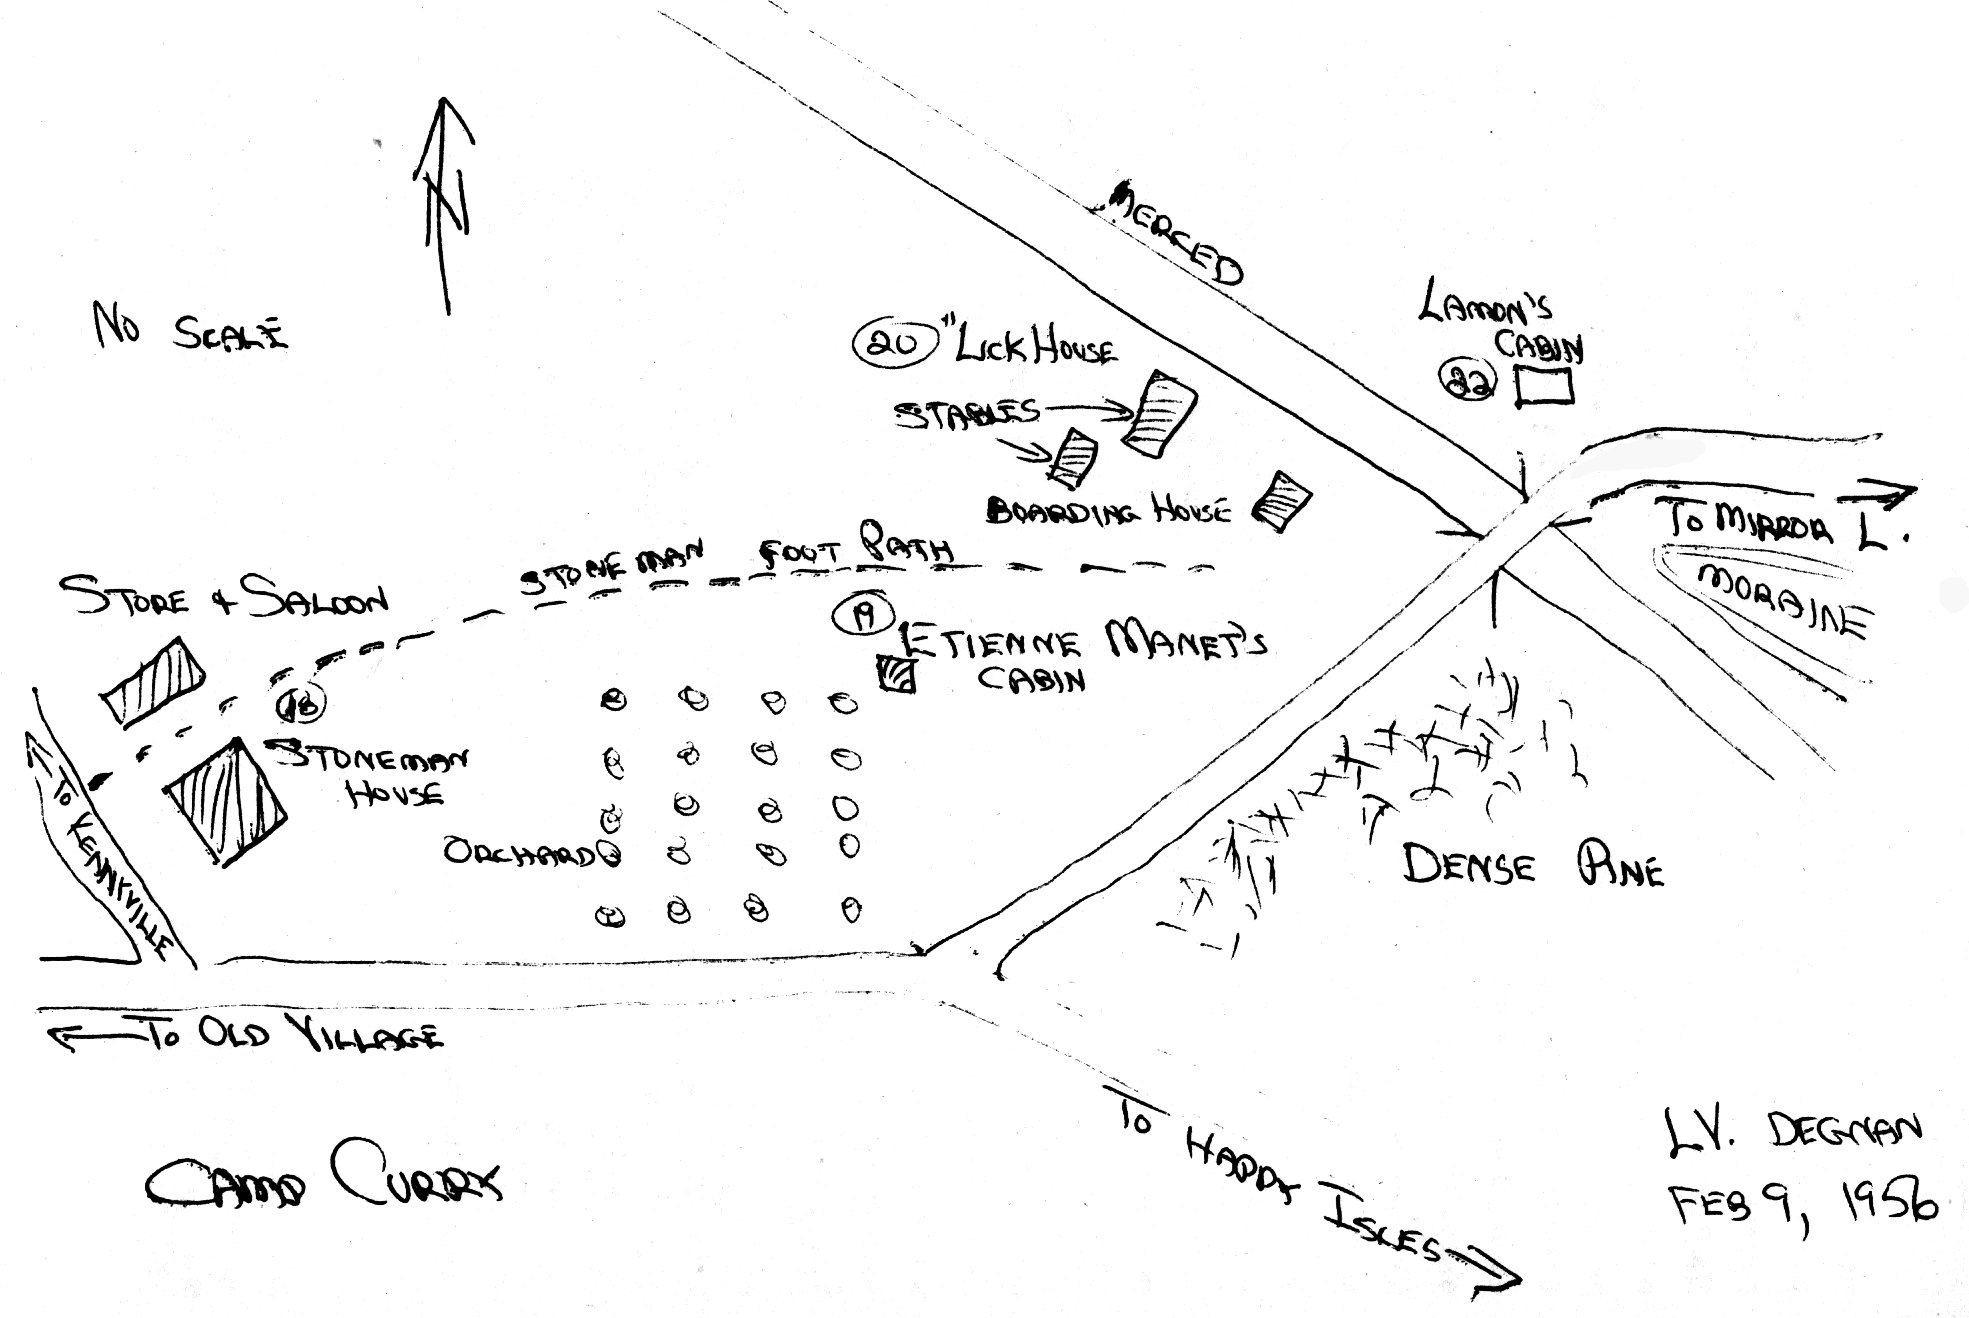 N
MERCED
NO SCALE
LAMON'S
CABIN
22
20 "LICK HOUSE
STABLES
BOARDING HOUSE
TO MIRROR L.
MORAINE
STONEMAN FOOT PATH
STORE & SALOON
19
ETIENNE MANET'S
CABIN
18
STONEMAN
HOUSE
TO KENNYVILLE
ORCHARD
DENSE PINE
TO OLD VILLAGE
TO HAPPY ISLES
CAMP CURRY
L.V. DEGNAN
FEB 9, 1956